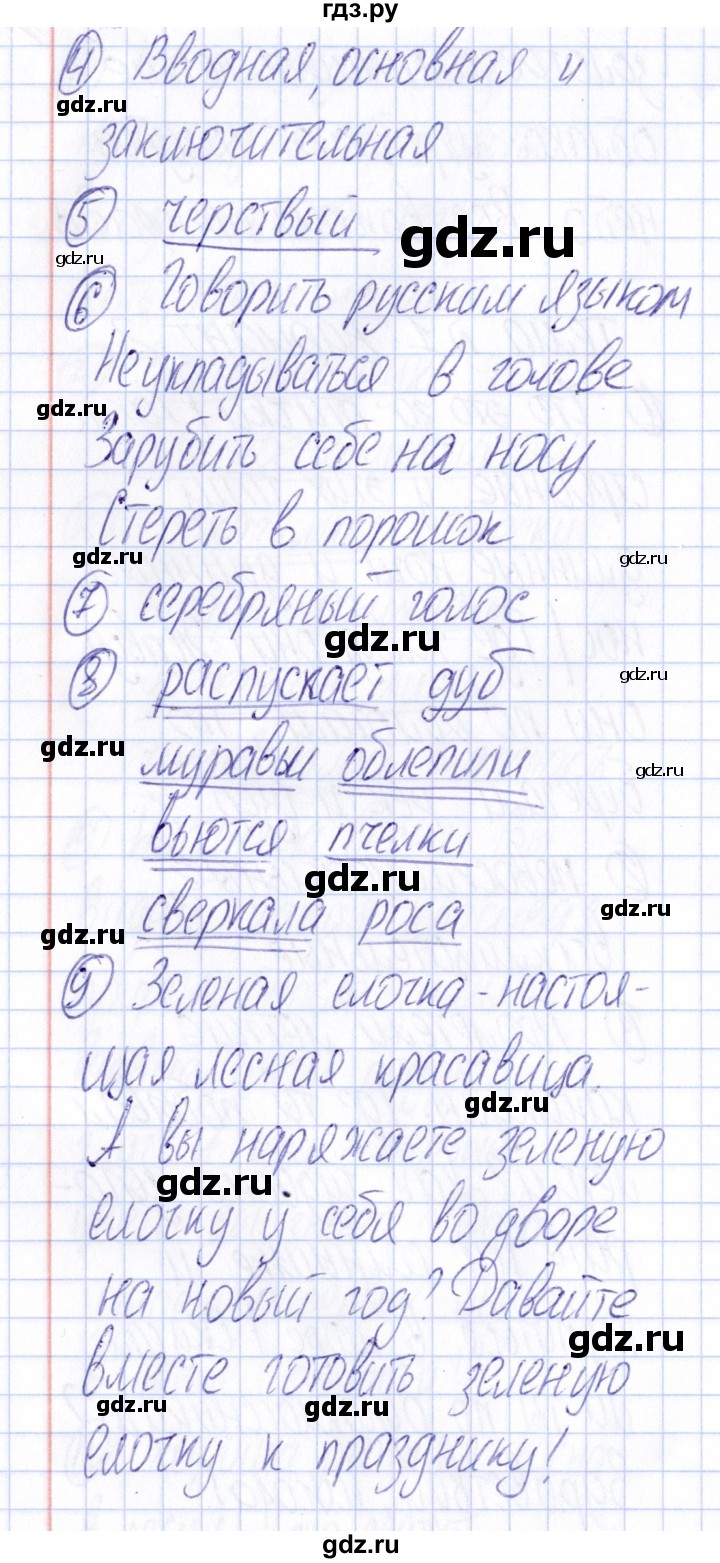 гдз.ру
④ Вводная, основная и
gdz.ru
заключительная
⑤ черствый
gdz.ru
gdz.ru
⑥ Говорить русским языком
Не укладываться в голове
gdz.ru
Зарубить себе на носу
Стереть в порошок
gdz.ru
gdz.ru
⑦ серебряный голос
gdz.ru
⑧ распускает дуб
gdz.ru
gdz.ru
муравьи облепили
gdz.ru
вьются пчелки
gdz.ru
сверкала роса
gdz.ru
gdz.ru
⑨ Зеленая елочка - настоя-
щая лесная красавица.
gdz.ru
А вы наряжаете зеленую
gdz.ru
елочку у себя во дворе
на новый год? Давайте
gdz.ru
вместе готовить зеленую
gdz.ru
gdz.ru
елочку к празднику!
gdz.ru